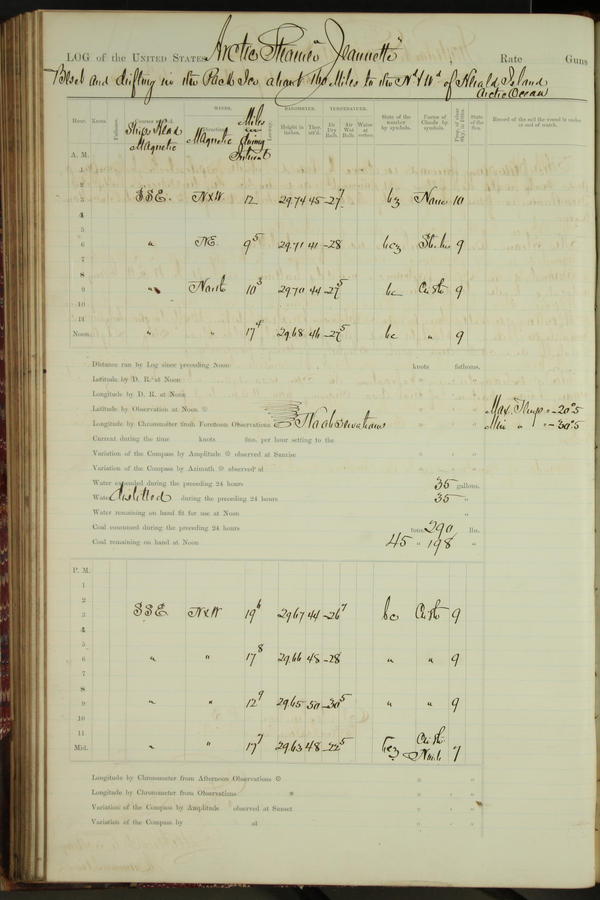 LOG of the UNITED STATES Arctic Steamer "Jeannette" Rate Guns
Beset and drifting in the Pack Ice about 160 Miles to the Nd & Wd of Herald Island
Arctic Ocean
Hour. Knots. Fathoms. Ships Head Magnetic WINDS. Magnetic Miles in Leeway. BAROMETER. Height in inches. Ther. att'd. TEMPERATURE. Air Dry Bulb. Air Wet Bulb. Water at surface. State of the weather by symbols. Forms of Clouds by symbols. Prop. of clear sky, in 10ths. State of the Sea. Record of the sail the vessel is under at end of watch.
A. M.
1
2
3 SSE NxW 12 29.74 45 -27 bcz None 10
4
5
6 " NE 9 5 29.71 41 -28 bcz 9
7
8
9 " North 10 3 29.70 44 -27 5 bc Ci St 9
10
11
Noon. " " 17 4 29.68 46 -27 5 bc " 9
Distance run by Log since preceding Noon knots fathoms.
Latitude by D. R. at Noon
Longitude by D. R. at Noon
Latitude by Observation at Noon Max. Temp " -20°5
Longitude by Chronometer from Forenoon Observations No observations Min " " -30°5
Current during the time knots fms. per hour setting to the
Variation of the Compass by Amplitude observed at Sunrise
Variation of the Compass by Azimuth observed at
Water expended during the preceding 24 hours 35 gallons.
Water distilled during the preceding 24 hours 35 "
Water remaining on hand fit for use at Noon
Coal consumed during the preceding 24 hours tons 290 lbs.
Coal remaining on hand at Noon 45 " 198 "
P. M.
1
2
3 SSE NxW 19 6 29.67 44 -26 7 bc Ci St 9
4
5
6 " " 17 8 29.66 48 -28 " " 9
7
8
9 " " 12 9 29.65 50 -30 5 " " 9
10
11
Mid. " " 17 7 29.63 48 -22 5 bcz Ci St 7
Longitude by Chronometer from Afternoon Observations
Longitude by Chronometer from Observations
Variation of the Compass by Amplitude observed at Sunset
Variation of the Compass by at